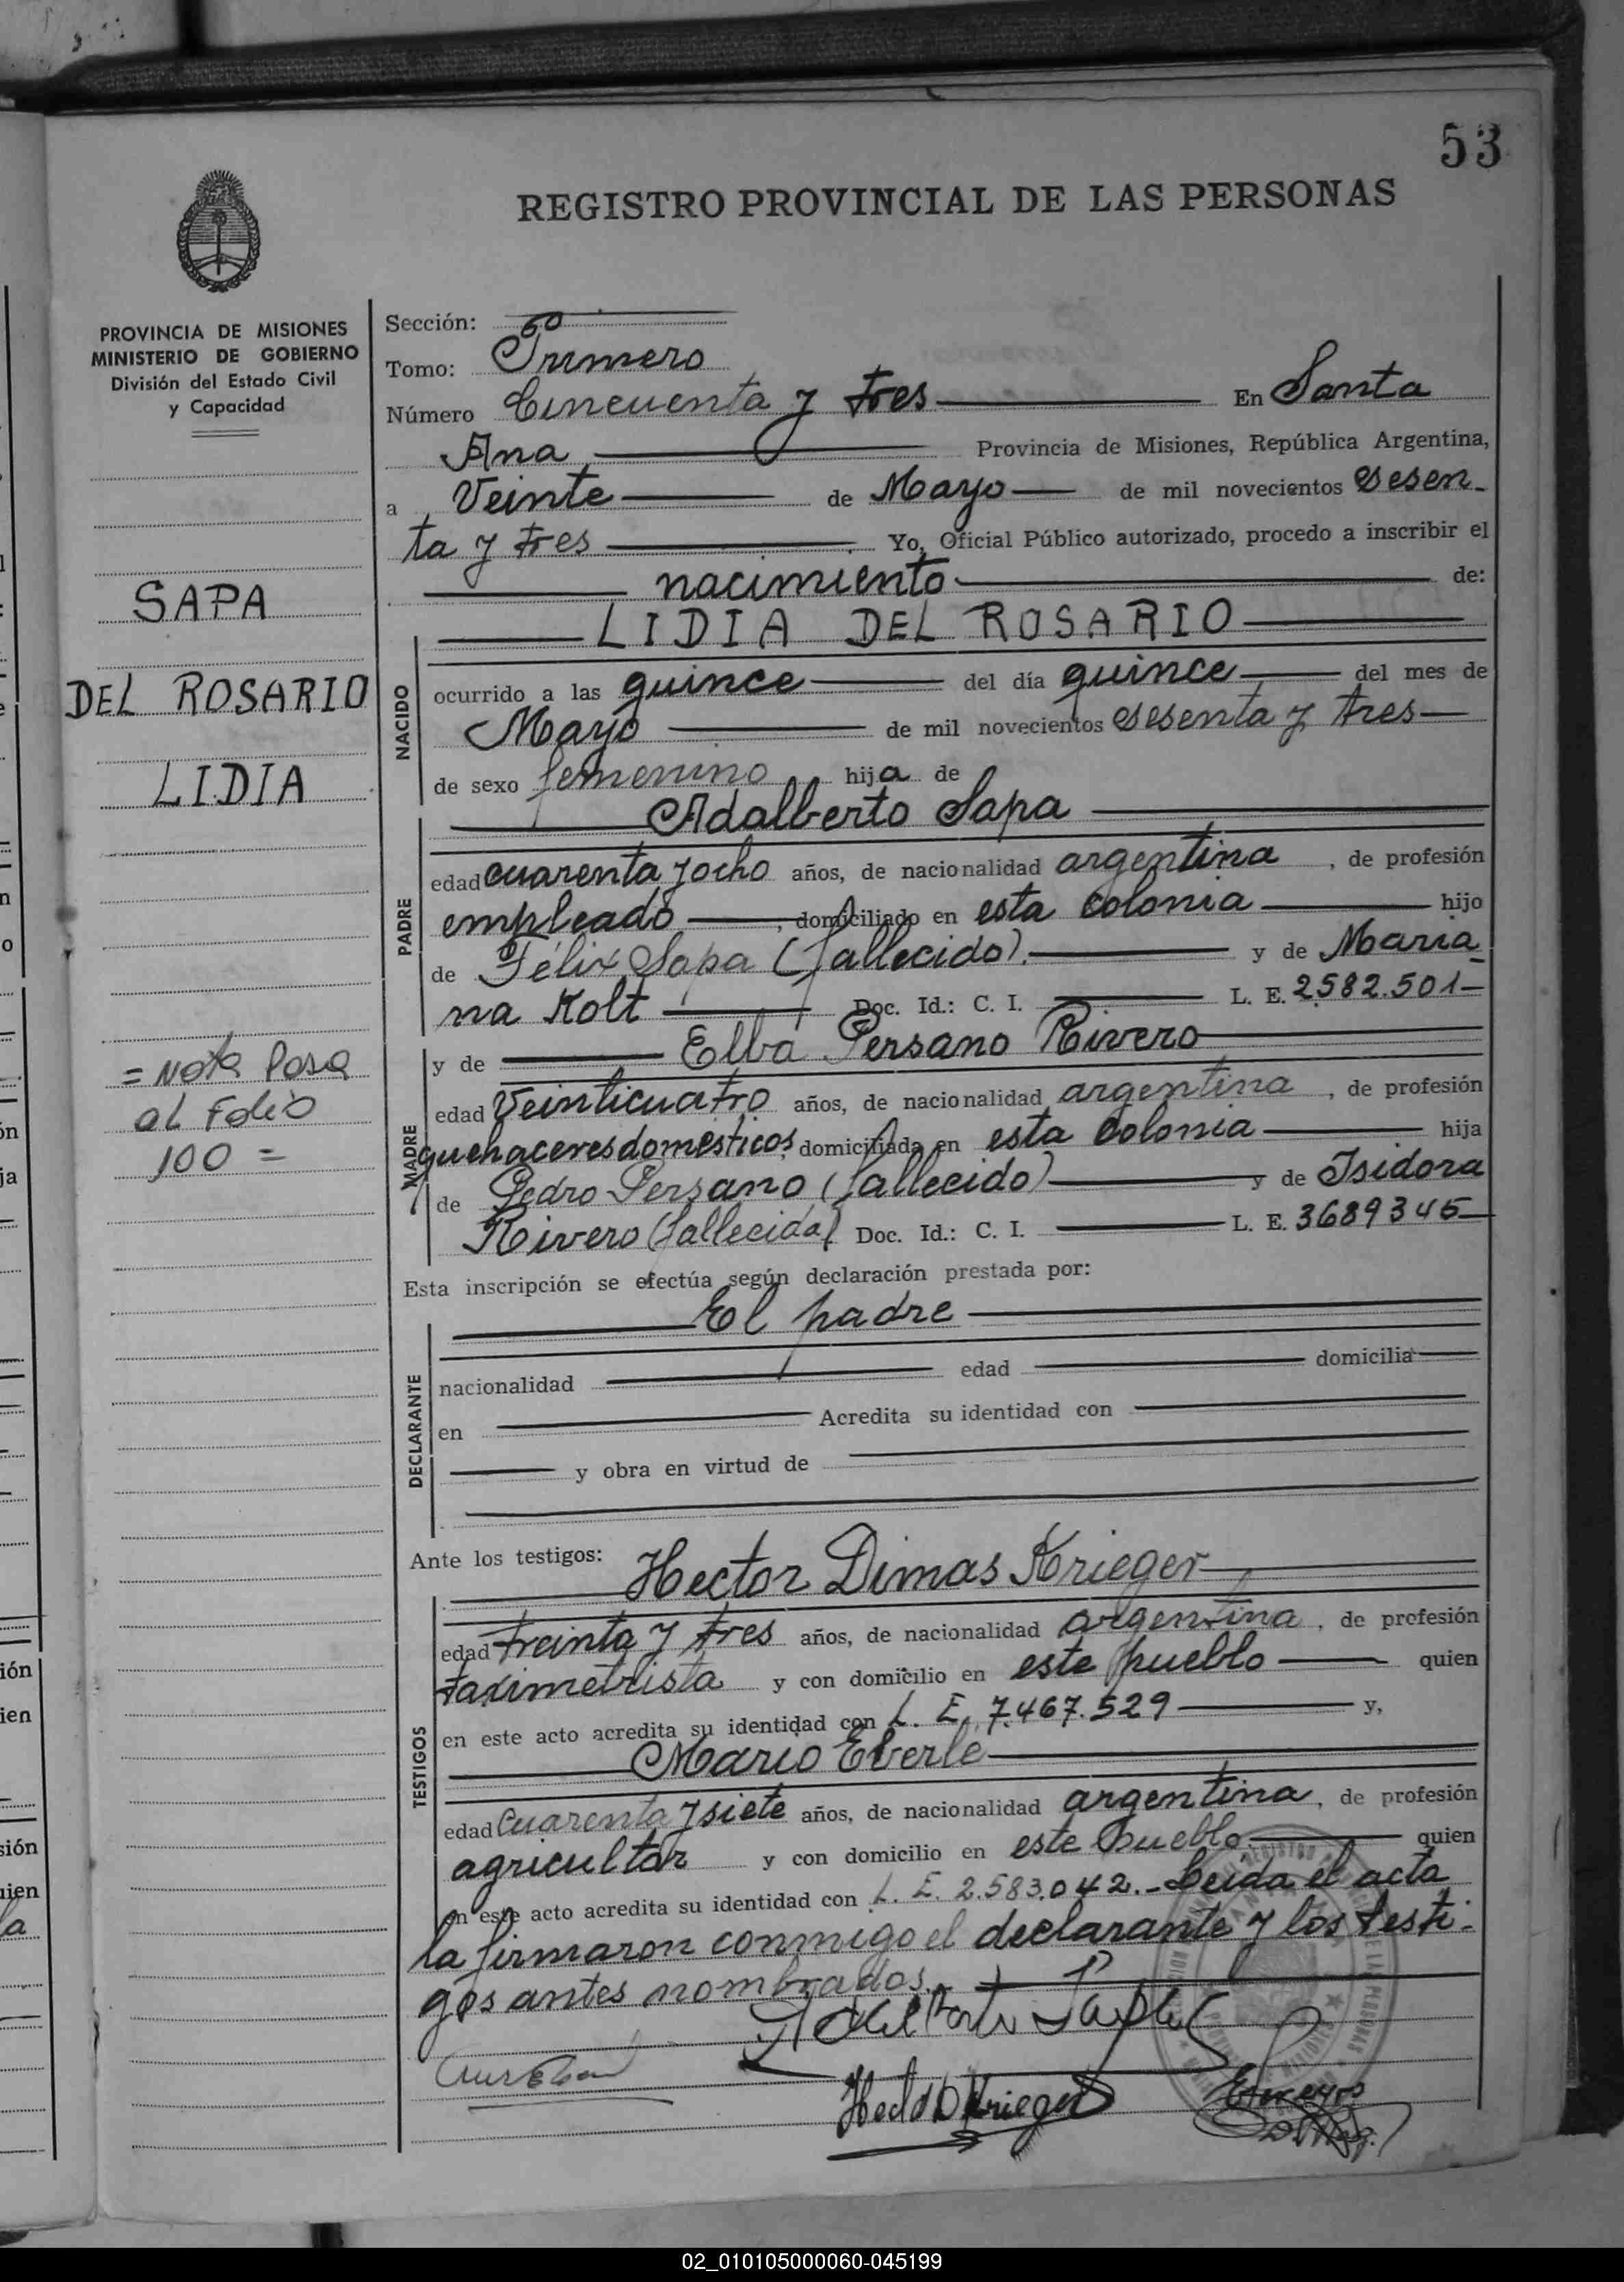 53
REGISTRO PROVINCIAL DE LAS PERSONAS
PROVINCIA DE MISIONES
MINISTERIO DE GOBIERNO
División del Estado Civil
y Capacidad
SAPA
DEL ROSARIO
LIDIA
= Nota Pasa
al Folio
100 =
Sección:
Tomo: Primero
Número Cincuenta y tres En Santa
Ana Provincia de Misiones, República Argentina,
a Veinte de Mayo de mil novecientos sesen-
ta y tres Yo, Oficial Público autorizado, procedo a inscribir el
nacimiento de:
LIDIA DEL ROSARIO
NACIDO
ocurrido a las quince del día quince del mes de
Mayo de mil novecientos sesenta y tres
de sexo femenino hija de
Adalberto Sapa
PADRE
edad cuarenta y ocho años, de nacionalidad argentina, de profesión
empleado, domiciliado en esta colonia hijo
de Félix Sapa (fallecido). y de Maria
na Kolt Doc. Id.: C. I. L. E. 2.582.501
y de Elba Persano Rivero
MADRE
edad Veinticuatro años, de nacionalidad argentina, de profesión
quehaceres domesticos, domiciliada en esta colonia hija
de Pedro Persano (fallecido) y de Isidora
Rivero (fallecida) Doc. Id.: C. I. L. E. 3689345
Esta inscripción se efectúa según declaración prestada por:
El padre
DECLARANTE
nacionalidad edad domicilia
en Acredita su identidad con
y obra en virtud de
Ante los testigos: Hector Dimas Krieger
TESTIGOS
edad treinta y tres años, de nacionalidad argentina, de profesión
taximetrista y con domicilio en este pueblo quien
en este acto acredita su identidad con L. E. 7.467.529 y,
Mario Eberle
edad cuarenta y siete años, de nacionalidad argentina, de profesión
agricultor y con domicilio en este pueblo. quien
en este acto acredita su identidad con L. E. 2.583.042.- Leida el acta
la firmaron conmigo el declarante y los testi-
gos antes nombrados.
Adalberto Sapa
Hector D Krieger
02_010105000060-045199